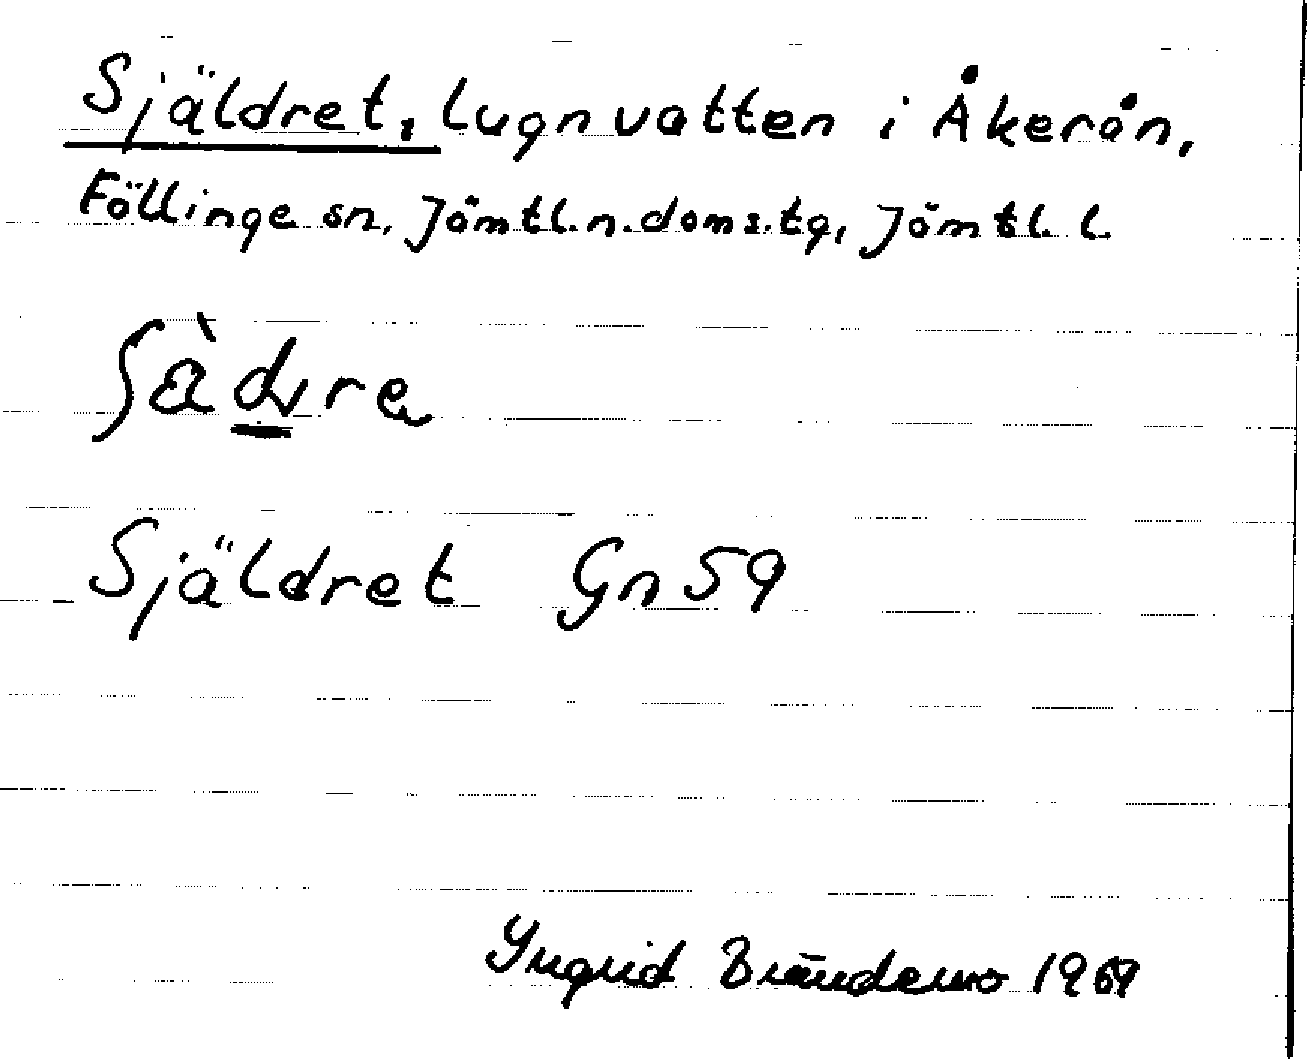 Själdret, lugnvatten i Åkerån,
Föllinge sn, Jämtl.n.doms.tg, Jämtl. l.
Själdret Gn 59
Ingrid Brändemo 1969